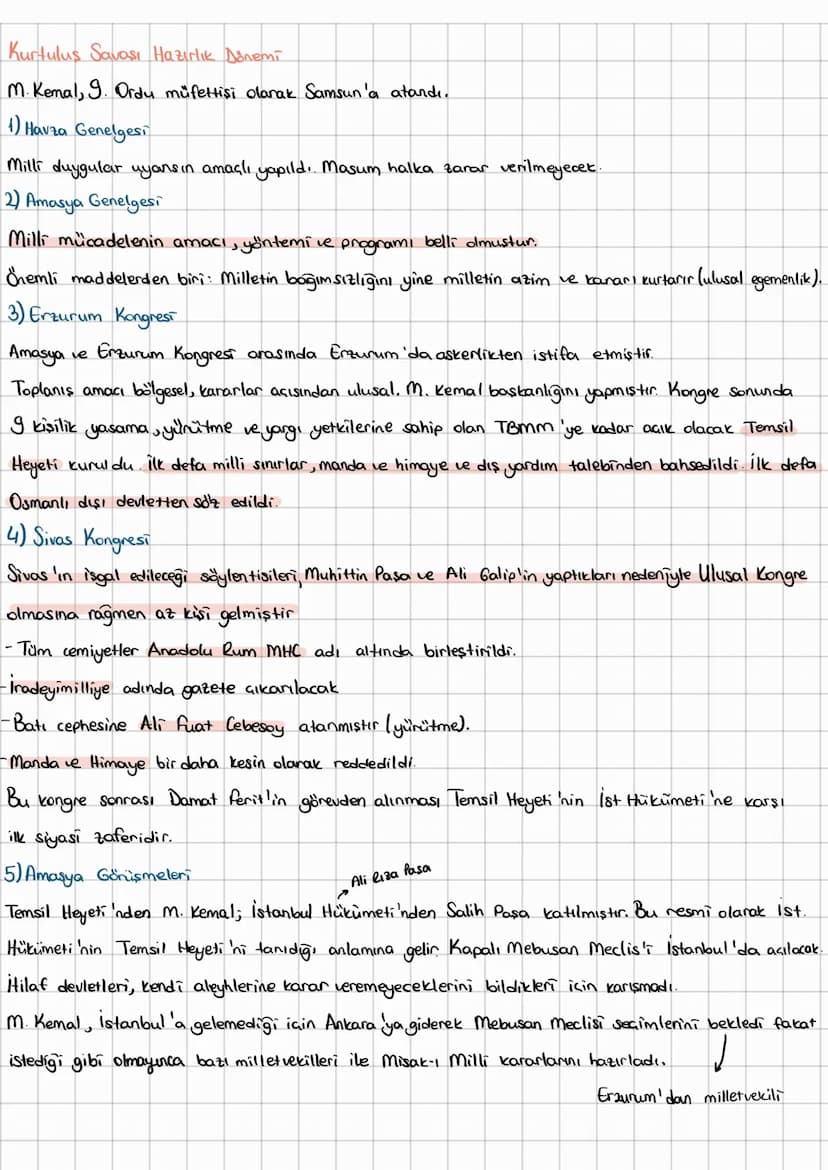 Kurtuluş Savaşı Hazırlık Dönemi
M. Kemal, 9. Ordu müfettişi olarak Samsun'a atandı.
1) Havza Genelgesi
Milli duygular uyansın amaçlı yapıldı. Masum halka zarar verilmeyecek.
2) Amasya Genelgesi
Milli mücadelenin amacı, yöntemi ve programı belli olmuştur.
Önemli maddelerden biri: Milletin bağımsızlığını yine milletin azim ve kararı kurtarır (ulusal egemenlik).
3) Erzurum Kongresi
Amasya ve Erzurum Kongresi arasında Erzurum'da askerlikten istifa etmiştir.
Toplanış amacı bölgesel, kararlar açısından ulusal. M. Kemal başkanlığını yapmıştır. Kongre sonunda
9 kişilik yasama, yürütme ve yargı yetkilerine sahip olan TBMM'ye kadar açık olacak Temsil
Heyeti kuruldu. İlk defa milli sınırlar, manda ve himaye ve dış yardım talebinden bahsedildi. İlk defa
Osmanlı dışı devletten söz edildi.
4) Sivas Kongresi
Sivas'ın işgal edileceği söylentisileri, Muhittin Paşa ve Ali Galip'in yaptıkları nedeniyle Ulusal Kongre
olmasına rağmen az kişi gelmiştir
- Tüm cemiyetler Anadolu Rum MHC adı altında birleştirildi.
-İradeyimilliye adında gazete çıkarılacak
-Batı cephesine Ali Fuat Cebesoy atanmıştır (yürütme).
-Manda ve Himaye bir daha kesin olarak reddedildi.
Bu kongre sonrası Damat Ferit'in görevden alınması, Temsil Heyeti'nin İst Hükümeti'ne karşı
ilk siyasi zaferidir.
5) Amasya Görüşmeleri
Ali Rıza Paşa
Temsil Heyeti'nden M. Kemal; İstanbul Hükümeti'nden Salih Paşa katılmıştır. Bu resmi olarak İst.
Hükümeti'nin Temsil Heyeti'ni tanıdığı anlamına gelir. Kapalı Mebusan Meclis'i İstanbul'da açılacak.
İtilaf devletleri, kendi aleyhlerine karar veremeyeceklerini bildikleri için karışmadı.
M. Kemal, İstanbul'a gelemediği için Ankara'ya giderek Mebusan Meclisi seçimlerini bekledi fakat
istediği gibi olmayınca bazı milletvekilleri ile Misak-ı Milli kararlarını hazırladı.
Erzurum'dan milletvekili